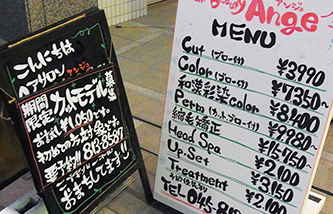 こんにちは
ヘアサロン アンジュ
期間限定 カットモデル 募集
お試し ¥1,050- です。
初めての方対象
要予約!! 813-8587
おまちしてま〜す!!
Beauty Ange
アンジュ
MENU
Cut (ブロー付) ¥3990
Color (ブロー付) ¥7350
和漢彩染color ¥8400
Perm (カット.ブロー付) ¥9980~
縮毛矯正 ¥14,750
Head Spa ¥2100
Up.Set ¥3,150
Treatment ¥2,100
TEL 045-81